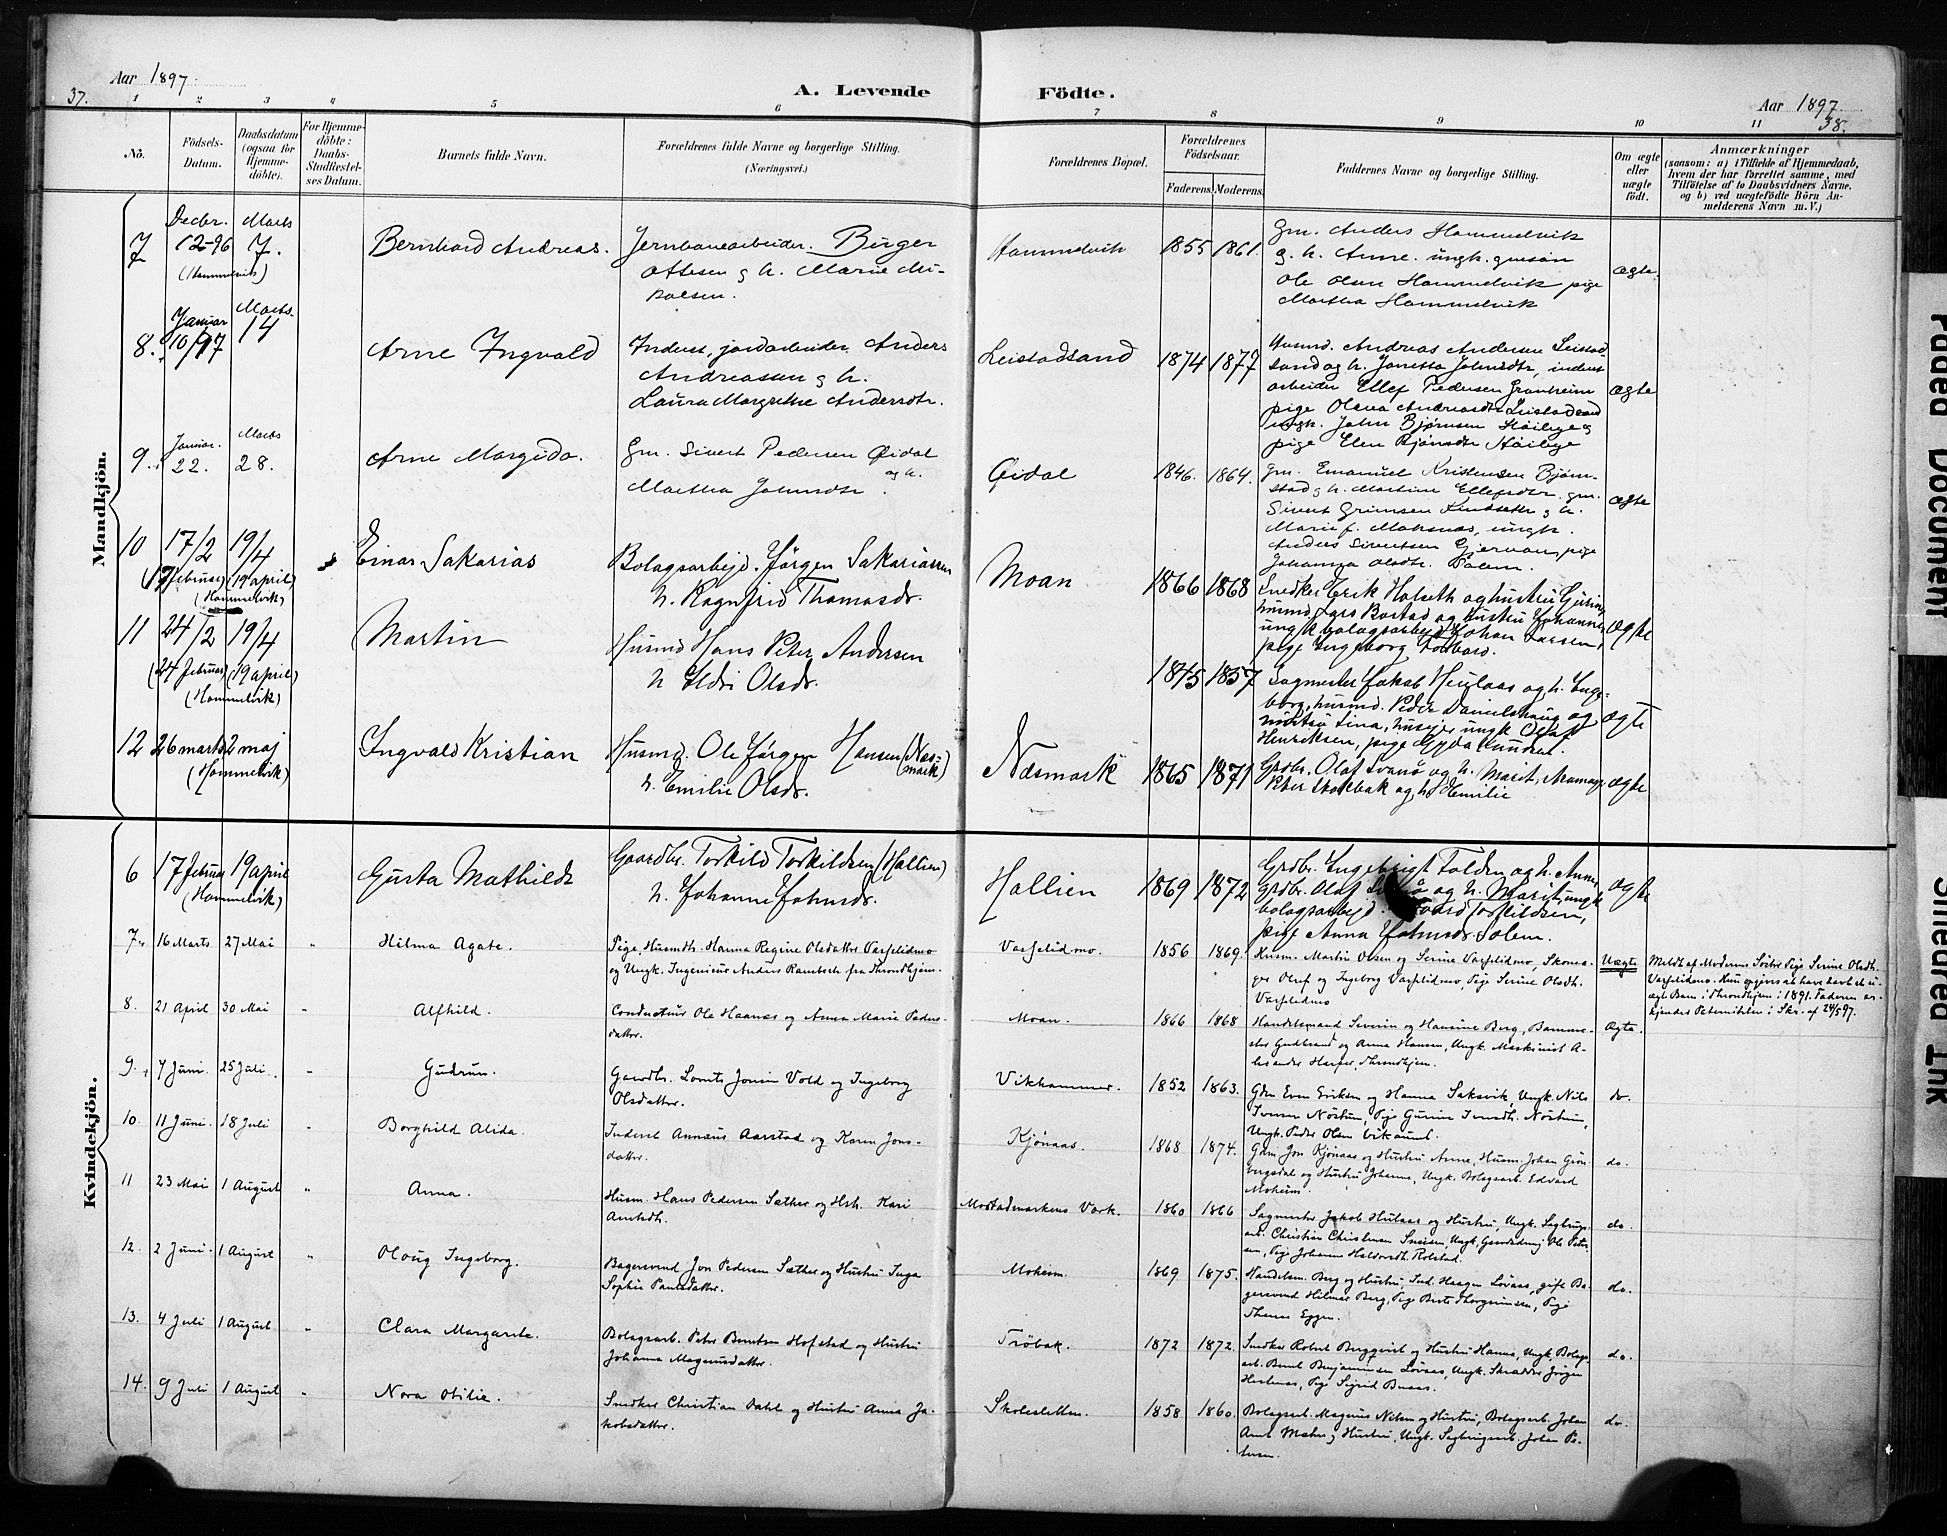 Aar 1897.
37.
A. Levende Födte.
Aar 1897
38.
1 2 3 4 5 6 7 8 9 10 11
No.
Födsels-Datum.
Daabsdatum (ogsaa for Hjemmedöbte).
For Hjemmedöbte: Daabs-Stadfæstelses Datum.
Barnets fulde Navn.
Forældrenes fulde Navne og borgerlige Stilling.
(Næringsvei.)
Forældrenes Bopæl.
Forældrenes Födselsaar.
Faderens. Moderens.
Faddernes Navne og borgerlige Stilling.
Om ægte eller uægte födt.
Anmærkninger
(saasom: a) i Tilfælde af Hjemmedaab, hvem der har forrettet samme, med Tilföielse af to Daabsvidners Navne, og b) ved uægtefödte Börn Anmelderens Navn m. V.)
Mandkjön.
7 Decbr. 12-96 (Hommelvik) Marts 7.
Bernhard Andreas.
Jernbanearbeider Birger
Ottesen g h. Marie Mi-
kalsen.
Hommelvik 1855 1861.
Gm. Anders Hommelvik
g. h. Anne. ungk. 
Ole Olsen Hommelvik pige
Martha Hommelvik
ægte.
8. Januar 10/97 Marts 14
Arne Ingvald
Inderst, jordarbeider Anders
Andreassen g h.
Laura Margrethe Andersdtr.
Leistadsand 1874 1877
Husmd. Andreas Andersen Leistad-
sand og h. Jonetta Johnsdtr, inderst
arbeider Ellef Pedersen Granheim
pige Olava Andreasdtr Leistadsand
ungk. John Bjørnsen Høiliye g
pige Elen Bjørnsdtr Høiliye
ægte
9. Januar. 22. Marts 28.
Arne Margido.
Gm. Sivert Pedersen Øidal
og h.
Martha Johnsdtr.
Øidal 1846. 1864.
Gm. Emanuel Kristensen Bjørn-
stad g h. Martine Ellefsdtr. gm.
Sivert Grimsen Lindseth g h.
Marie f. ungk.
Anders Sivertsen Gjervan, pige
Johanna Olsdtr. Solem.
ægte
10 17/2 19/4
(17 februar) (19 april)
(Hommelvik)
Einar Sakarias
Bolagsarbejd. Jørgen Sakariassen
h. Ragnfrid Thomasdr.
Moan 1866 1868
Snedker Erik Halseth og hustru Gjertine,
husmd. Lars Borstad og hustru Johanna,
ungk bolagsarbejd Johan Larsen,
pige Ingeborg
ægte
11 24/2 19/4
(24 februar) (19 april)
(Hommelvik)
Martin
Husmd Hans Peter Andersen
h Eldri Olsdr.
1845 1857
Sagmester Jakob Heulaas og h. Inge-
borg, husmd. Peder Danielshaug og
hustru Lina, husejer ungk Olaf
Henriksen, pige Gyda Knudsen.
ægte
12 26 marts 2 maj
(Hommelvik)
Ingvald Kristian
Husmd. Ole Jørgen Hansen (Næs-
mark)
h. Emilie Olsdr.
Næsmark 1865 1871
Grdbr. Olaf Svanø og h. Marit,
Peter Stokbak og h. Emilie
ægte
Kvindekjön.
6 17 februar 19 april
(Hommelvik)
Gusta Mathilde
Gaardbr. Torkild Torkildsen (Hallien)
h. Johanne Johnsdr.
Hallien 1869 1872
Grdbr. Ingebrigt Folden og h. Anne,
Grdbr. Olaf Svanø og h. Marit, ungk
bolagsarbejd. Torkildsen,
pige Anna Johnsdr. Solem.
ægte
7. 16 Marts 27 Mai "
Hilma Agate.
Pige, Husmdtr. Hanna Regine Olsdatter Varfelidmo
og Ungk. Ingeniør Anders Rambech fra Throndhjem.
Varfelidmo. 1856 1869.
Husm. Martin Olsen og Serine Varfelidmo, Skoma-
ger Oluf og Ingeborg Varfelidmo, Pige Serine Olsdtr.
Varfelidmo
Uægte
Meldt af Moderens Søster Pige Serine Olsdtr.
Varfelidmo. Hun opgives at have havt et u-
ægt Barn i Throndhjem i 1891. Faderen er-
kjender Paterniteten i Skr. af 24/5 97.
8. 21 April 30 Mai "
Alfhild.
Conductør Ole Haanes og Anna Marie Peders-
datter.
Moan. 1866 1868
Handelsmand Severin og Hansine Berg, Banme-
ster Gudbrand og Anna Hansen, Ungk. Maskinist A-
lexander Harper, Throndhjem.
Ægte.
9. 7 Juni 25 Juli. "
Gudrun.
Gaardbr. Lornts Jonsen Vold og Ingeborg
Olsdatter.
Vikhammer. 1852 1863.
Gdm Even Eriksen og Hanna Saksvik, Ungk. Nils
Iversen Nøstum, Pige Gurine Iversdtr. Nøstum,
Ungk. Peder Olsen Vikaunet.
do.
10. 11 Juni 18 Juli "
Borghild Alida.
Inderst Annæus Aarstad og Karen Jons-
datter.
Kjønaas. 1868 1874.
Gdm Jon Kjønaas og Hustru Anne, Husm. Johan Grøn-
bergsdal og Hustru Johanna, Ungk. Bolagsarb. Edvard
Moheim.
do.
11 23 Mai 1 August "
Anna.
Husm. Hans Pedersen Sæther og Hstr. Kari
Arntsdtr.
Mostadmarkens Værk. 1860 1866
Sagmester Jakob Hulaas og Hustru, Ungk. Sagbrugs-
arb. Christian Christensen Svensen, Ungk. Gaardsdreng Ole Peter-
sen, Pige Johanna Haldorsdtr. Rolstad.
do.
12. 2 Juni 1 August "
Olaug Ingeborg.
Bagersvend Jon Pedersen Sæther og Hustru Inga
Sophie Paulsdatter.
Moheim. 1869 1875.
Handelsm. Berg og Hustru, Ind. Haagen Løvaas, gifte Ba-
gersvend Hilmar Berg, Pige Berte Thorgrimsen, Pige
Theres Eggen.
do.
13. 4 Juli 1 August "
Clara Margarete.
Bolagsarb. Peter Berntsen Hofstad og Hustru
Johanna Magnusdatter.
Trøbak. 1872 1872.
Snedker Robert Bergqvist og Hustru Hanna, Ungk. Bolags-
arb. Bernt Benjaminsen Løvaas, Ungk. Skrædder Jørgen
Hestenæs, Pige Sigrid Buaas.
do.
14. 9 Juli 1 August "
Nora Otilie.
Snedker Christian Dahl og Hustru Anna Ja-
kobsdatter.
Skolesletten. 1858 1860.
Bolagsarb. Magnus Nilsen og Hustru, Bolagsarb. Johan
Arnt Mæhre og Hustru, Ungk. Sagbrugsarb. Johan Pe-
tersen.
do.
Faded Document
Smeared Ink